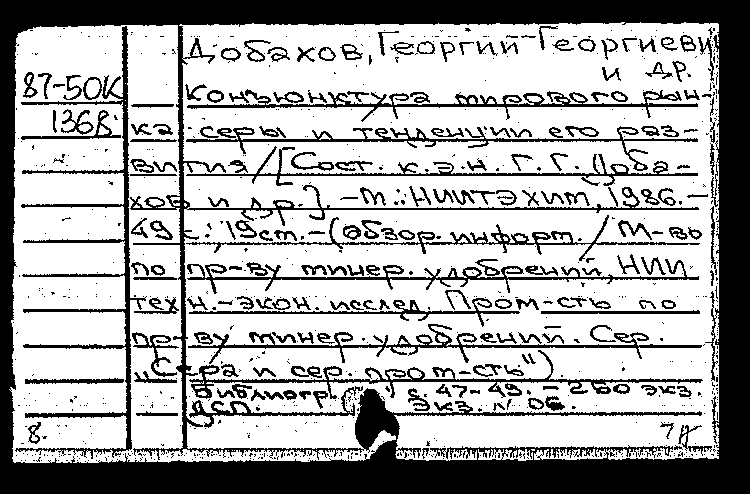 Добахов, Георгий Георгиеви
и др.
87-50К
Конъюнктура мирового рын-
1368.
ка серы и тенденции его раз-
вития / [Сост. к.э.н. Г.Г. Доба-
хов и др.]. – М.: НИИТЭхим, 1986. –
49 с.; 19 см. – (Обзор. информ. / М-во
по пр-ву минер. удобрений, НИИ
техн.-экон. исслед. Пром-сть по
пр-ву минер. удобрений. Сер.
"Сера и сер. пром-сть")
Библиогр. с. 47-49. – 260 экз.
ДСП. Экз. № 06.
8.